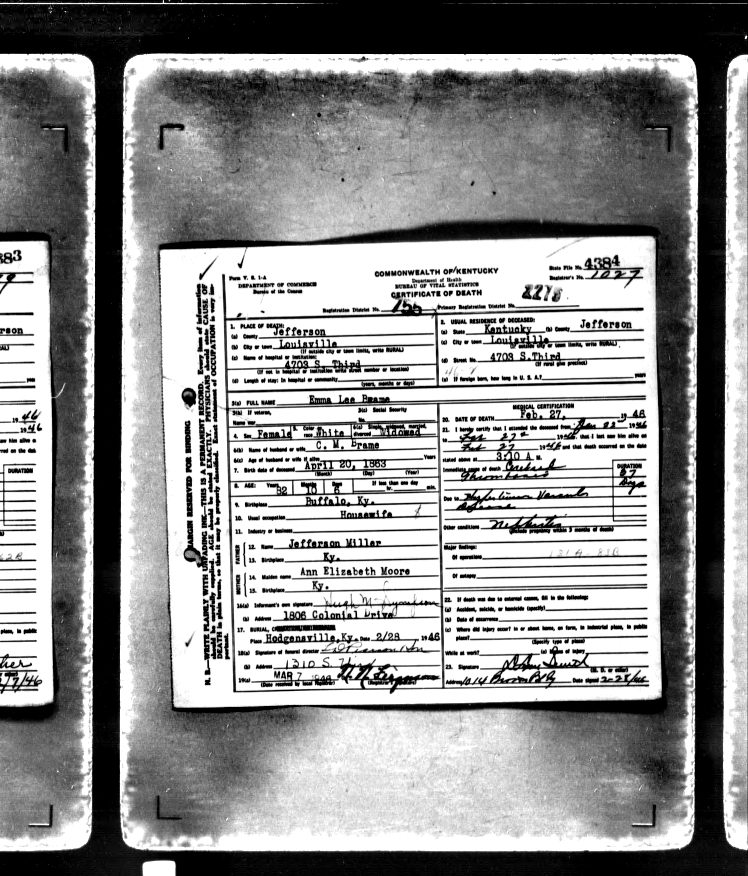 Form V. S. 1-A
DEPARTMENT OF COMMERCE
Bureau of the Census
COMMONWEALTH OF KENTUCKY
Department of Health
BUREAU OF VITAL STATISTICS
CERTIFICATE OF DEATH
State File No. 4384
Registrar's No. 1027
Registration District No. 755 Primary Registration District No. 2276
1. PLACE OF DEATH:
(a) County Jefferson
(b) City or town Louisville
(If outside city or town limits, write RURAL)
(c) Name of hospital or institution:
4703 S. Third
(If not in hospital or institution write street number or location)
(d) Length of stay: In hospital or community
(years, months or days)
2. USUAL RESIDENCE OF DECEASED:
(a) State Kentucky (b) County Jefferson
(c) City or town Louisville
(If outside city or town limits, write RURAL)
(d) Street No. 4703 S. Third
(If rural give precinct)
(e) If foreign born, how long in U. S. A.? years
3(a) FULL NAME Emma Lee Brame
3(b) If veteran, 3(c) Social Security
Name war No.
4. Sex Female 5. Color or race White 6(a) Single, widowed, married, divorced Widowed
6(b) Name of husband or wife C. M. Brame
6(c) Age of husband or wife if alive Years
7. Birth date of deceased April 20, 1863
(Month) (Day) (Year)
8. AGE: Years Months Days If less than one day
82 10 hr. min.
9. Birthplace Buffalo, Ky.
10. Usual occupation Housewife
11. Industry or business
FATHER
12. Name Jefferson Miller
13. Birthplace Ky.
MOTHER
14. Maiden name Ann Elizabeth Moore
15. Birthplace Ky.
16(a) Informant's own signature Hugh M
(b) Address 1806 Colonial Drive
17. BURIAL
Place Hodgensville, Ky. Date 2/28 1946
18(a) Signature of funeral director Pearson
(b) Address 1310 S. Third
19(a) MAR 7 1946
(Date received by local Registrar) (Registrar's signature)
MEDICAL CERTIFICATION
20. DATE OF DEATH Feb. 27, 1946
21. I hereby certify that I attended the deceased from 22 1946
to Feb 27 1946, that I last saw him alive on
Feb 27 1946 and that death occurred on the date
stated above at 3:10 A M.
Immediate cause of death Cerebral
Thrombosis
DURATION
Days
Due to Hypertensive Vascular
Disease
Other conditions Nephritis
(Include pregnancy within 3 months of death)
Major findings:
Of operations
Of autopsy
22. If death was due to external causes, fill in the following:
(a) Accident, suicide, or homicide (specify)
(b) Date of occurrence
(c) Where did injury occur? in or about home, on farm, in industrial place, in public
place?
(Specify type of place)
While at work? (e) Means of injury
23. Signature
(M. D. or other)
Address 1014 Brown Bldg Date signed 2-28/46
MARGIN RESERVED FOR BINDING
N. B.—WRITE PLAINLY WITH UNFADING INK—THIS IS A PERMANENT RECORD. Every item of information should be carefully supplied. AGE should be stated EXACTLY. PHYSICIANS should state CAUSE OF DEATH in plain terms, so that it may be properly classified. Exact statement of OCCUPATION is very important.